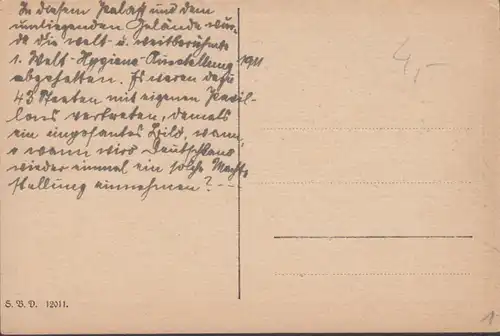 In diesem Palast und dem
umliegenden Gelände wur-
de die welt- u. weitberühmte
1. Welt-Hygiene-Ausstellung 1911
abgehalten. Es waren dazu
43 Staaten mit eigenen Pavil-
lons vertreten, damals
ein imposantes Bild, wann,
o wann wird Deutschland
wieder einmal ein solche Macht-
stellung einnehmen? ---
4,-
S. V. D. 12011.
1